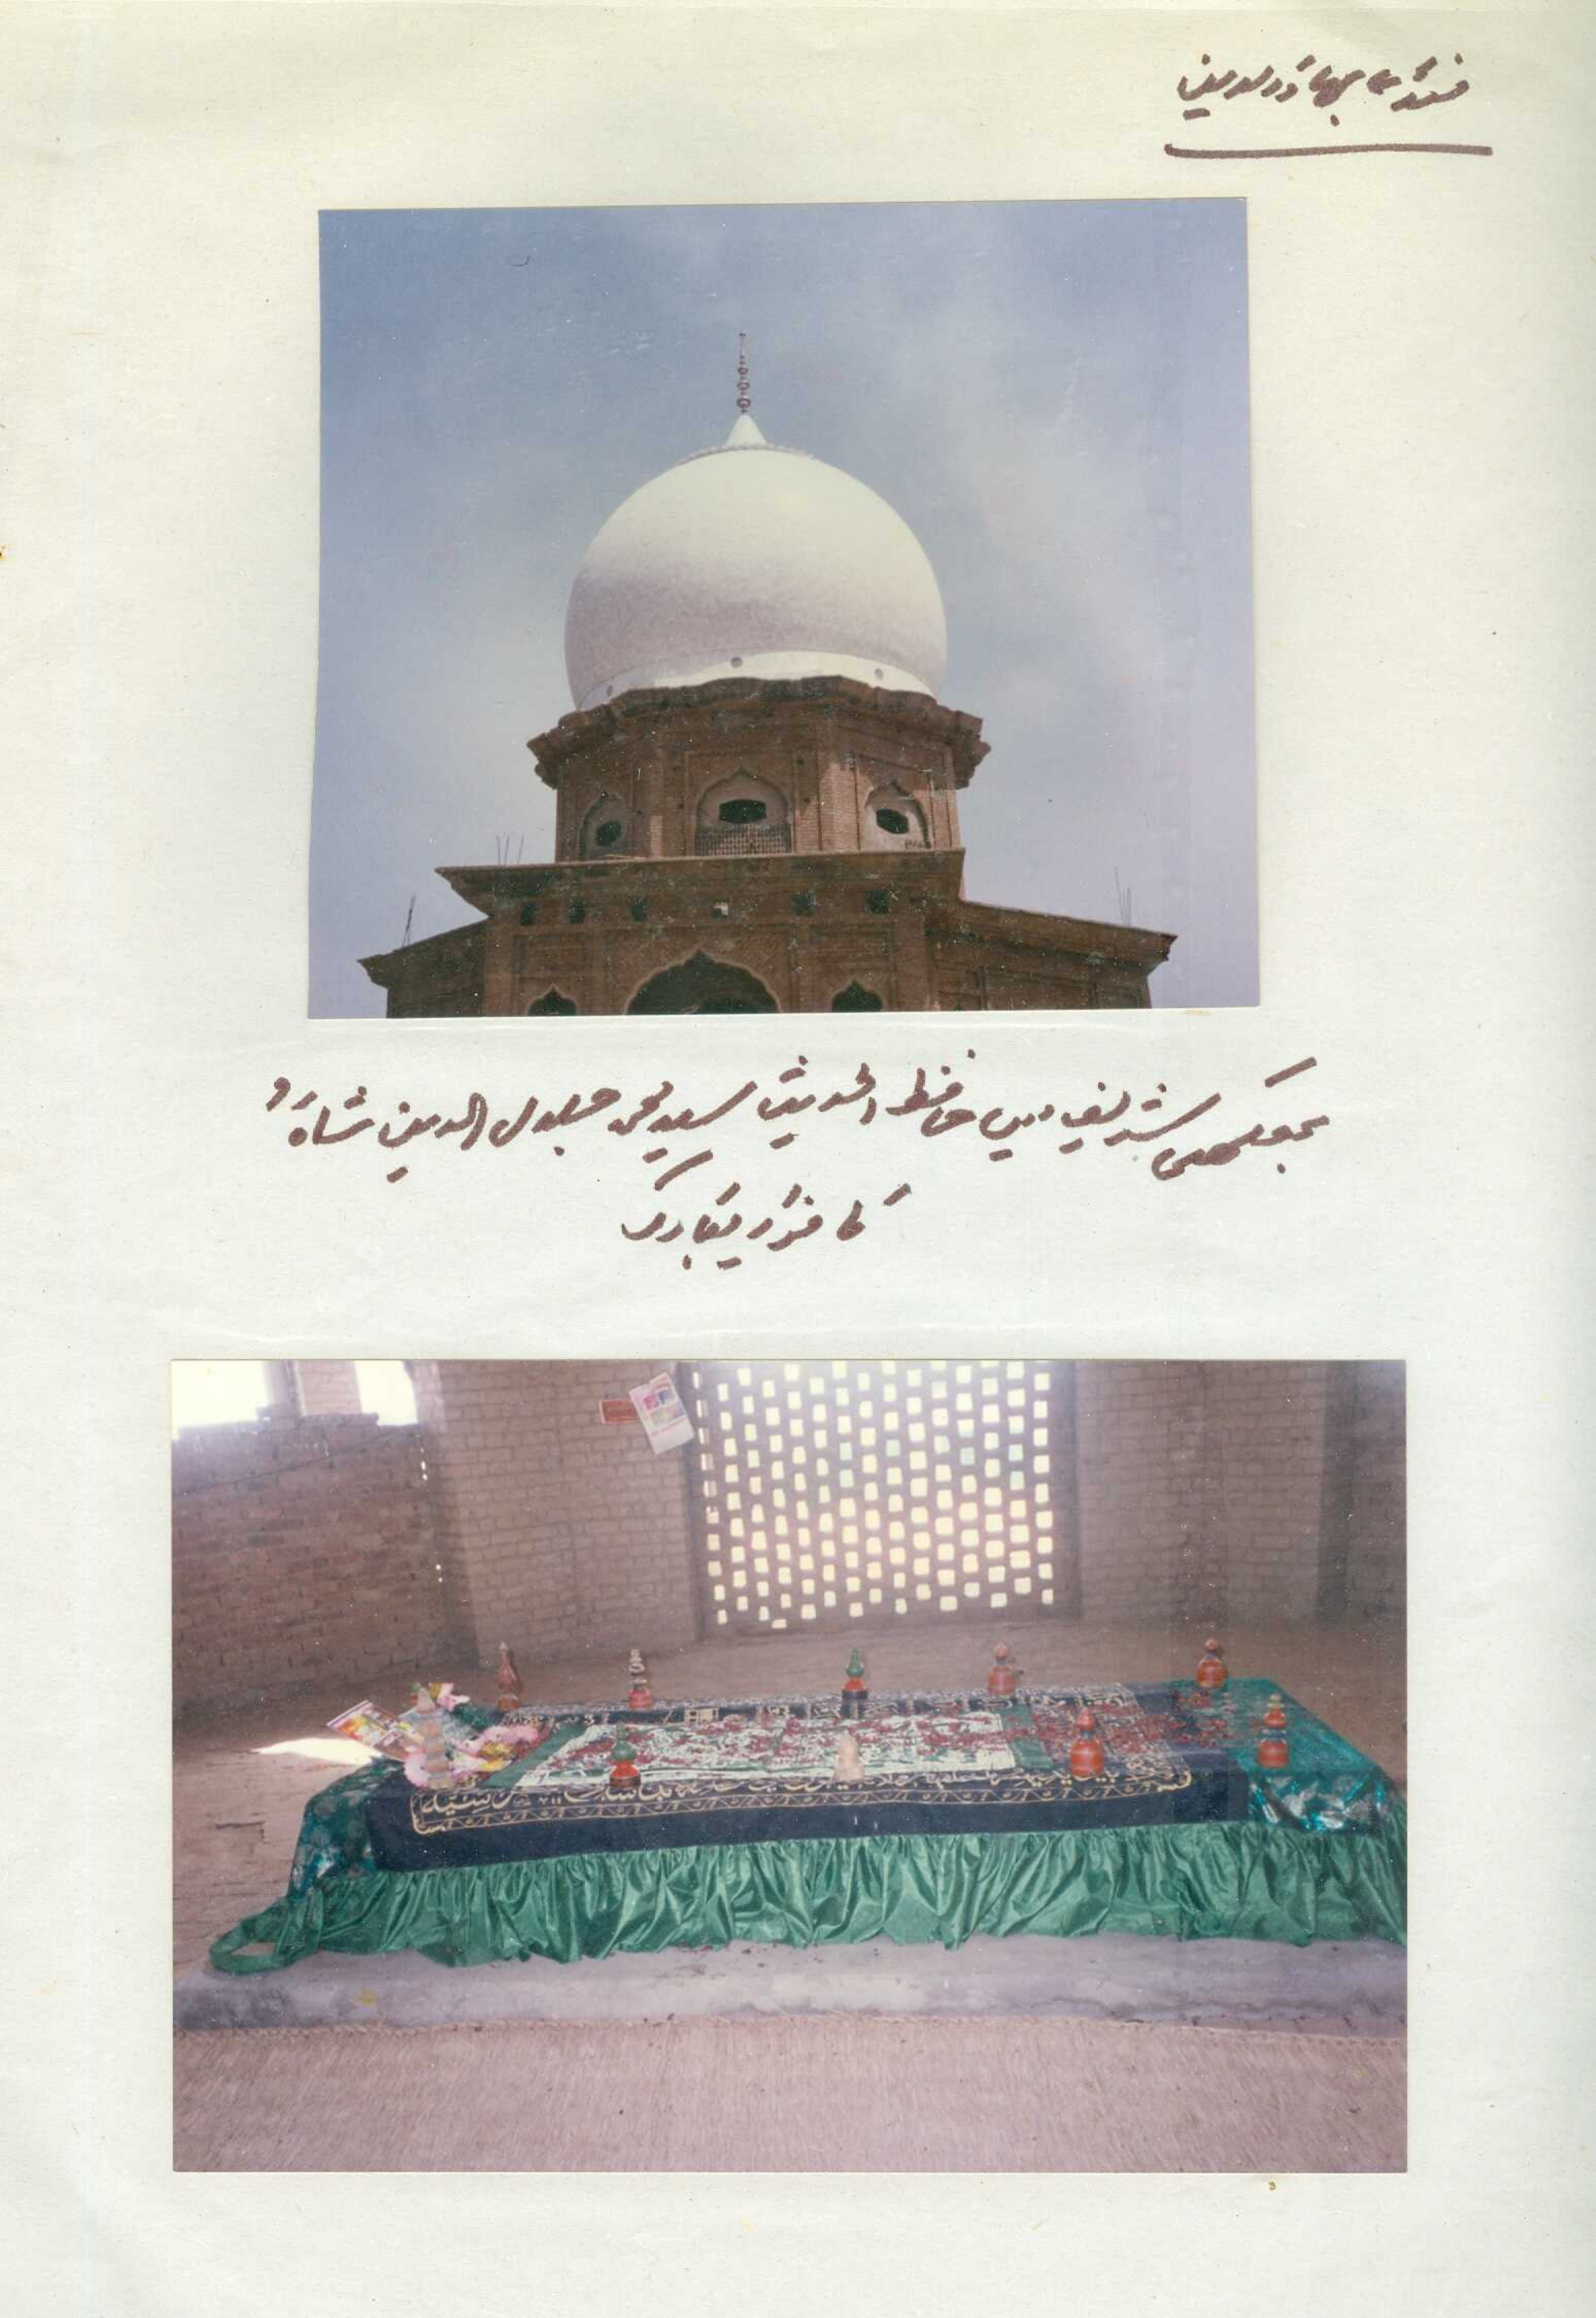 منڈی بہاؤالدین
بھکھی شریف میں حافظ الحدیث سید محمد جلال الدین شاہؒ
کا مزار مبارک